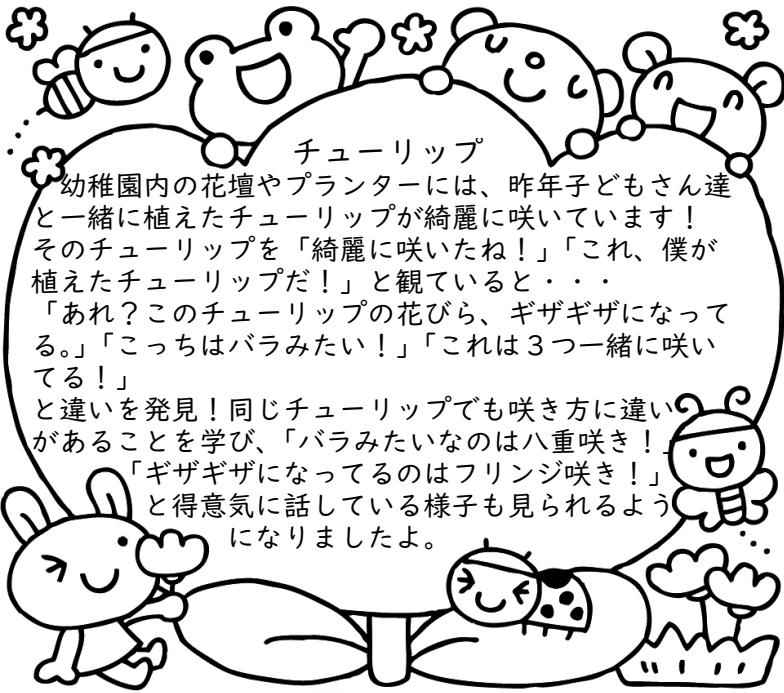 チューリップ
幼稚園内の花壇やプランターには、昨年子どもさん達
と一緒に植えたチューリップが綺麗に咲いています！
そのチューリップを「綺麗に咲いたね！」「これ、僕が
植えたチューリップだ！」と観ていると・・・
「あれ？このチューリップの花びら、ギザギザになって
る。」「こっちはバラみたい！」「これは３つ一緒に咲い
てる！」
と違いを発見！同じチューリップでも咲き方に違い
があることを学び、「バラみたいなのは八重咲き！」
「ギザギザになってるのはフリンジ咲き！」
と得意気に話している様子も見られるよう
になりましたよ。